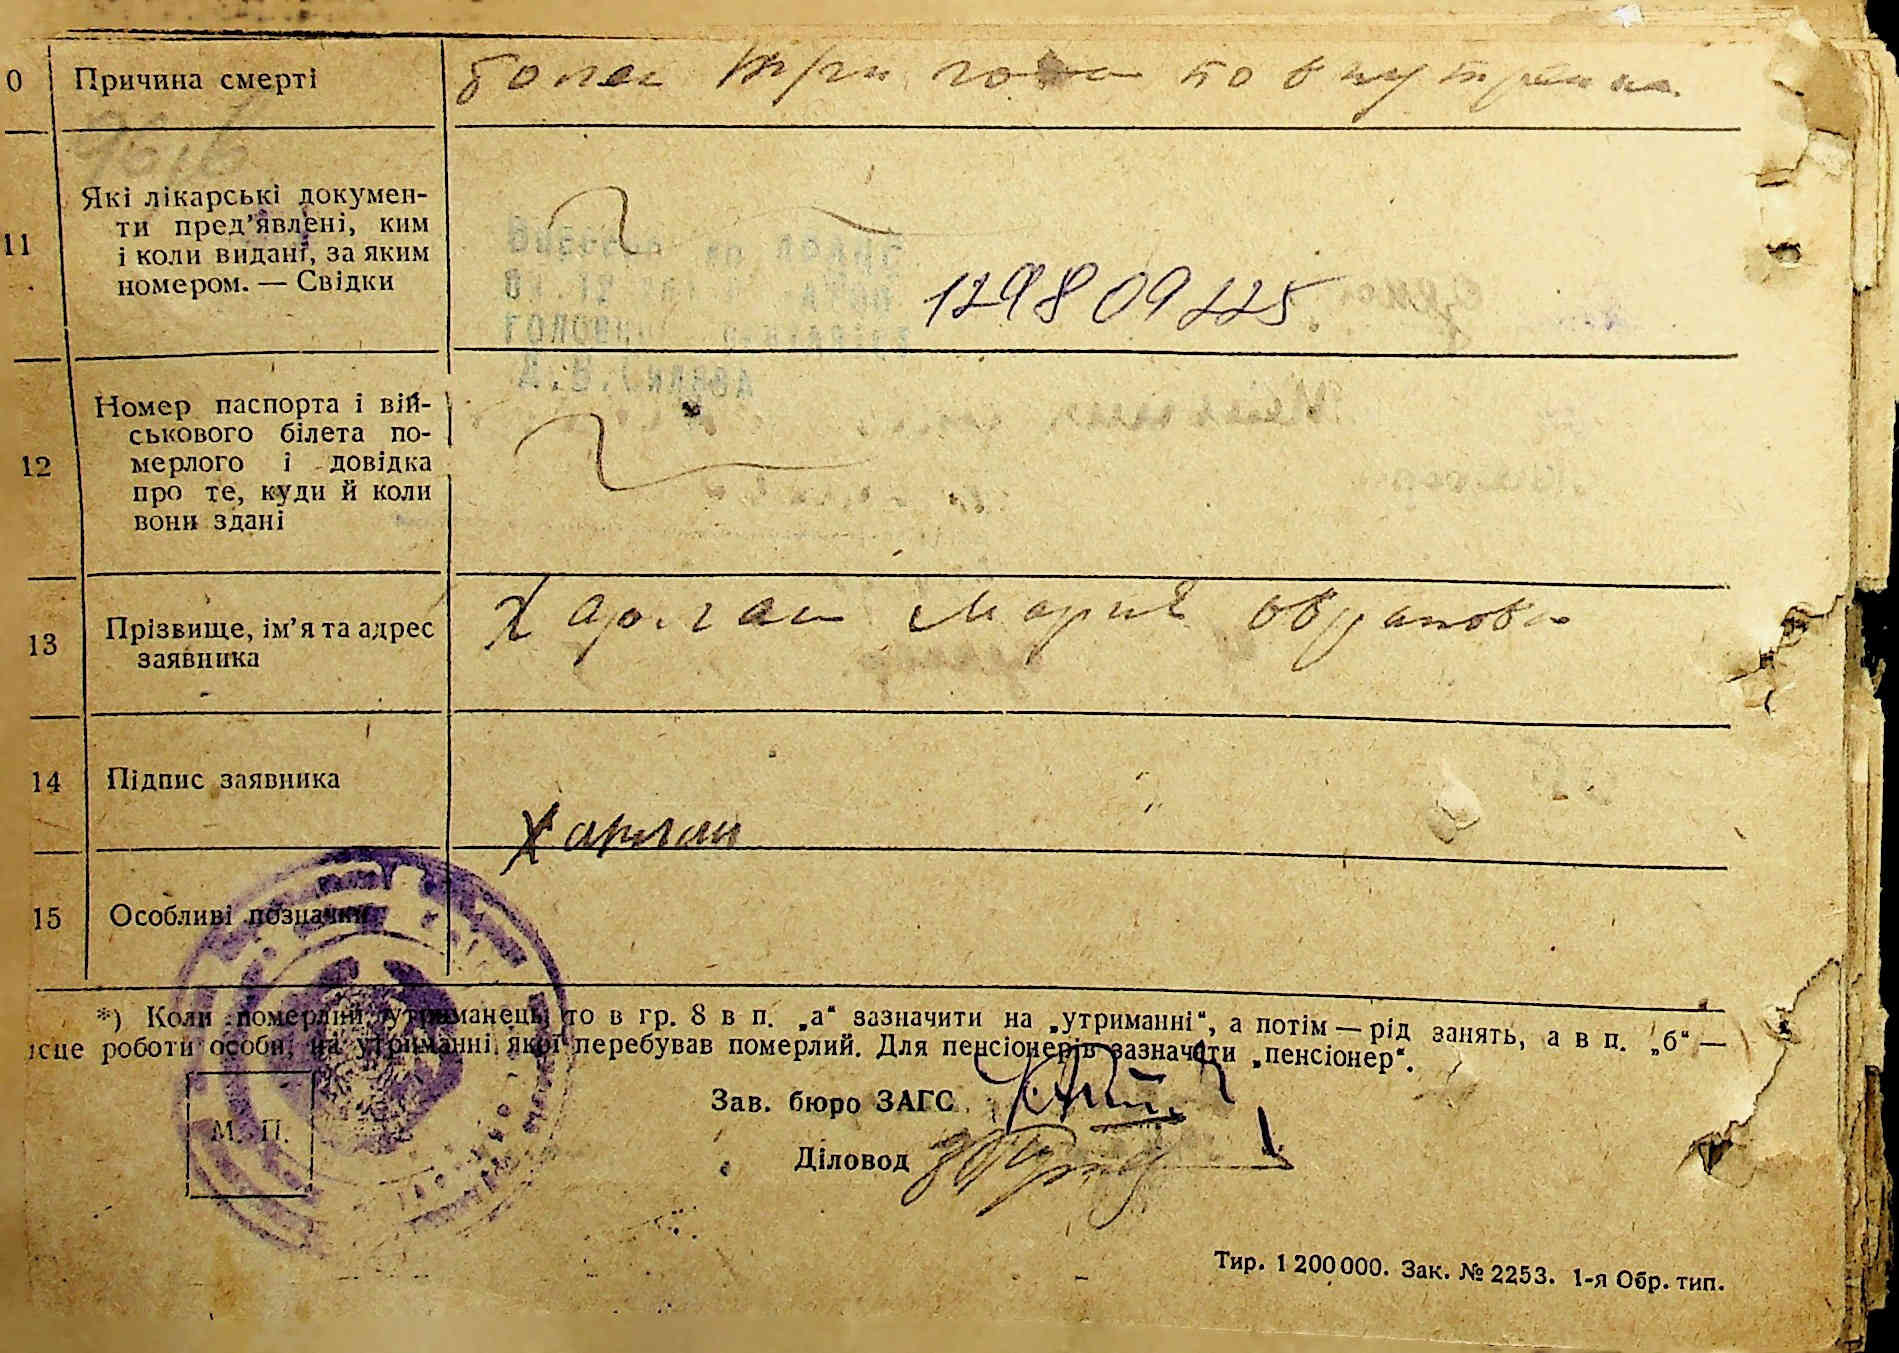 0 Причина смерті
болел три года
9616
11 Які лікарські докумен-
ти пред’явлені, ким
і коли видані, за яким
номером. — Свідки
129809225
12 Номер паспорта і вій-
ськового білета по-
мерлого і довідка
про те, куди й коли
вони здані
13 Прізвище, ім’я та адрес
заявника
Харлан Мария
14 Підпис заявника
Харлан
15 Особливі позначки
*) Коли померлий утриманець, то в гр. 8 в п. „а“ зазначити на „утриманні“, а потім — рід занять, а в п. „б“ —
ісце роботи особи, на утриманні якої перебував померлий. Для пенсіонерів зазначати „пенсіонер“.
Зав. бюро ЗАГС
М. П.
Діловод
Тир. 1 200 000. Зак. № 2253. 1-я Обр. тип.